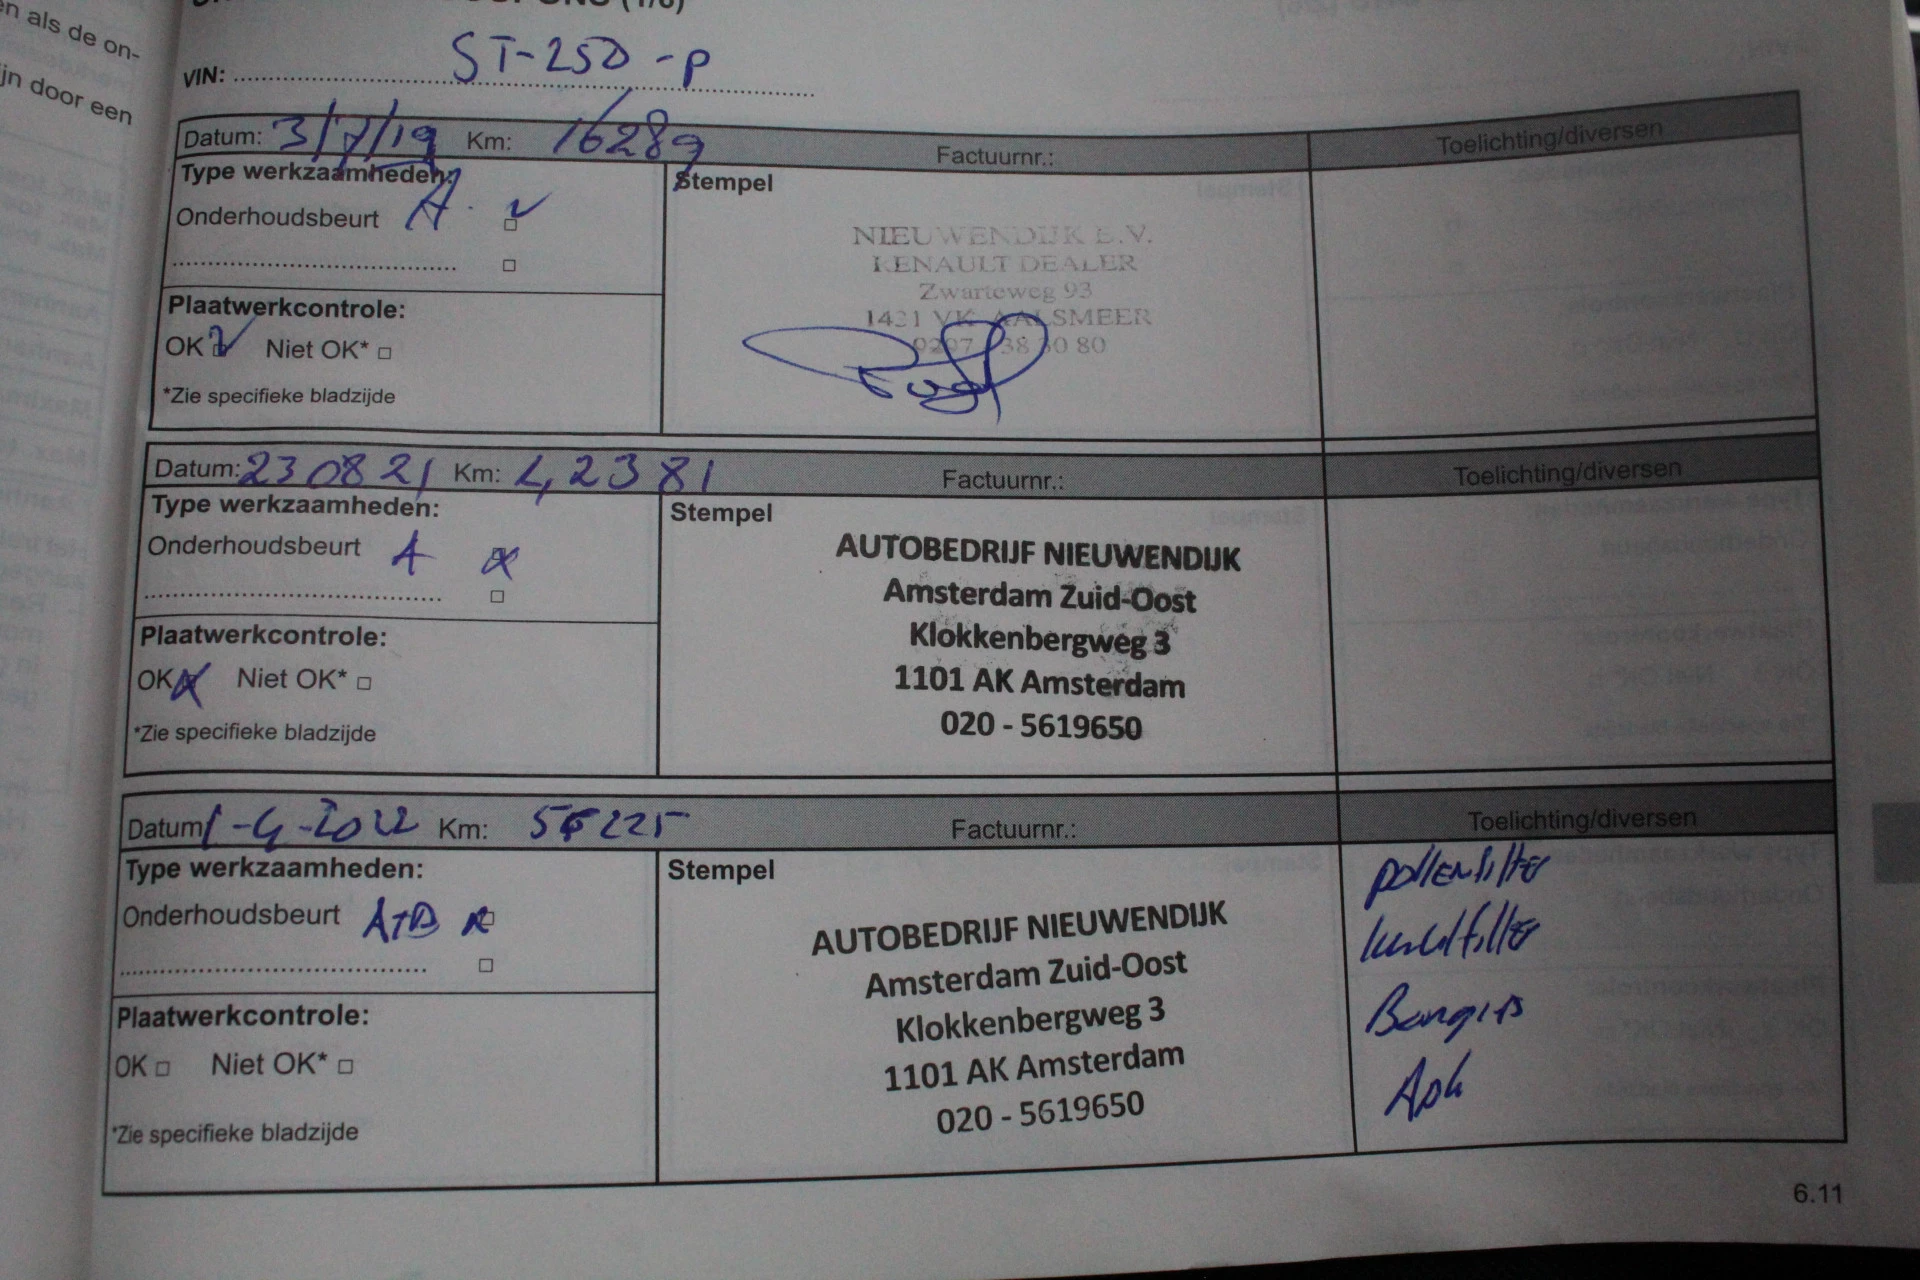 en als de on-
ijn door een
VIN: ST-250-P
Datum: 3/7/19 Km: 16289 Factuurnr.: Toelichting/diversen
Type werkzaamheden: Stempel
Onderhoudsbeurt A
NIEUWENDIJK B.V.
RENAULT DEALER
Zwarteweg 93
1431 VK AALSMEER
Plaatwerkcontrole:
OK Niet OK*
*Zie specifieke bladzijde
Datum: 230821 Km: 42381 Factuurnr.: Toelichting/diversen
Type werkzaamheden: Stempel
Onderhoudsbeurt A
AUTOBEDRIJF NIEUWENDIJK
Amsterdam Zuid-Oost
Klokkenbergweg 3
1101 AK Amsterdam
020 - 5619650
Plaatwerkcontrole:
OK Niet OK*
*Zie specifieke bladzijde
Datum 1-4-2022 Km: 56225 Factuurnr.: Toelichting/diversen
Type werkzaamheden: Stempel
Onderhoudsbeurt A+B
AUTOBEDRIJF NIEUWENDIJK
Amsterdam Zuid-Oost
Klokkenbergweg 3
1101 AK Amsterdam
020 - 5619650
pollenfilter
luchtfilter
Bougies
Apk
Plaatwerkcontrole:
OK Niet OK*
*Zie specifieke bladzijde
6.11